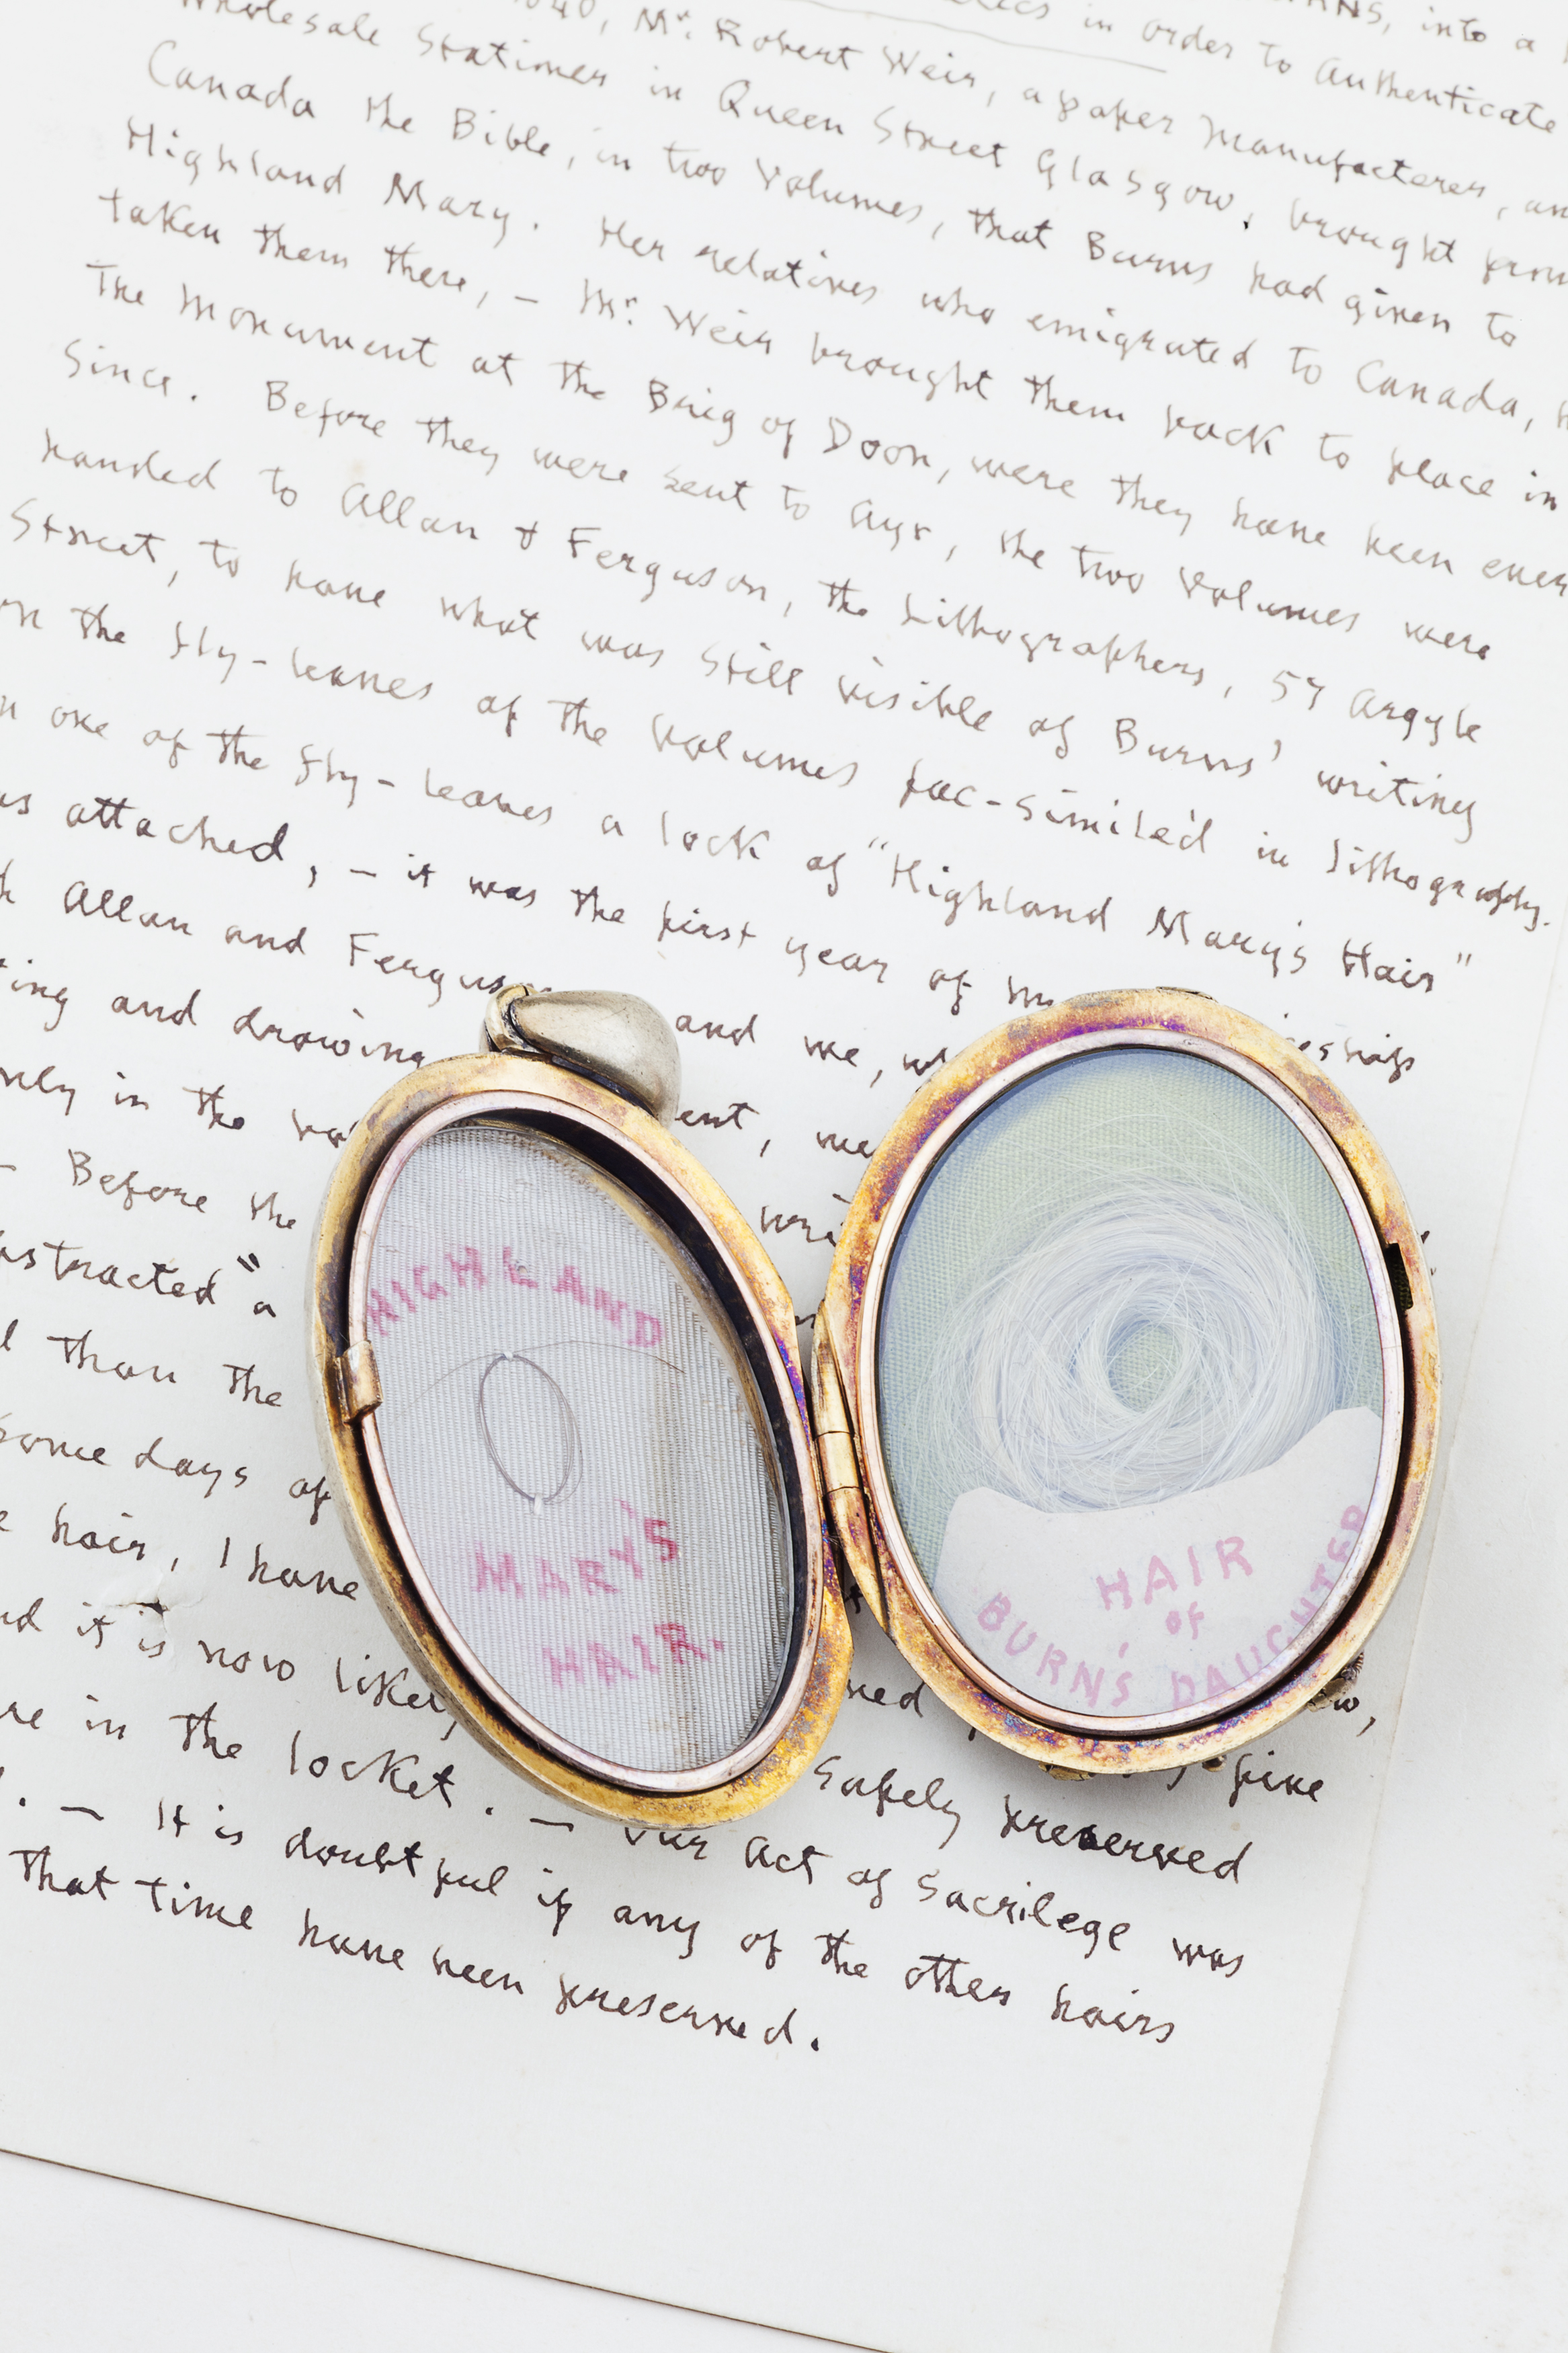 in order to authenticate
1840, Mr. Robert Weir, a paper manufacterer, an
Wholesale Stationer in Queen Street Glasgow, brought from
Canada the Bible, in two Volumes, that Burns had given to
Highland Mary. Her relatives who emigrated to Canada, h
taken them there, – Mr. Weir brought them back to place in
The Monument at the Brig of Doon, were they have been ever
Since. Before they were sent to Ayr, the two Volumes were
handed to Allan & Ferguson, the Lithographers, 57 Argyle
Street, to have what was still visible of Burns' writing
on the fly-leaves of the Volumes fac-simile'd in Lithography.
n one of the fly-leaves a lock of "Highland Mary's Hair"
as attached, – it was the first year of my
h Allan and Ferguson and we, wh
ting and drawing ent, we
nly in the
– Before the wri
bstracted "a
l than the
some days of
e hair, I have
nd it is now likely ned
re in the locket. – Safely preserved
. – It is doubtful if any of the other hairs
Our act of sacrilege was
that time have been preserved.
HIGHLAND
MARY'S
HAIR.
HAIR
OF
BURN'S DAUGHTER